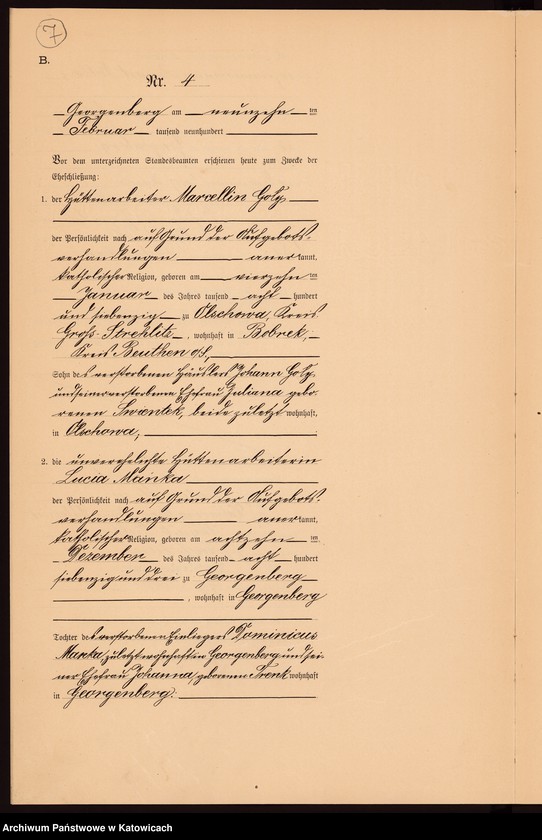 7
B.
Nr. 4
Georgenberg am neunzehnten
Februar tausend neunhundert
Vor dem unterzeichneten Standesbeamten erschienen heute zum Zwecke der
Eheschließung:
1. der Hüttenarbeiter Marcellin Goly
der Persönlichkeit nach auf Grund der Aufgebots-
verhandlungen anerkannt,
katholischer Religion, geboren am vierzehnten
Januar des Jahres tausend acht hundert
und siebenzig zu Olschowa, Kreis
Groß-Strehlitz, wohnhaft in Bobrek,
Kreis Beuthen o/S,
Sohn des verstorbenen Häusler Johann Goly
und seiner verstorbenen Ehefrau Juliana gebo-
renen Swientek, beide zuletzt wohnhaft,
in Olschowa,
2. die unverehelichte Hüttenarbeiterin
Lucia Manka
der Persönlichkeit nach auf Grund der Aufgebots-
verhandlungen anerkannt,
katholischer Religion, geboren am achtzehnten
Dezember des Jahres tausend acht hundert
siebenzig und drei zu Georgenberg
, wohnhaft in Georgenberg
Tochter des verstorbenen Einliegers Dominicus
Manka, zuletzt wohnhaft in Georgenberg und sei-
ner Ehefrau Johanna, geborenen Frenk wohnhaft
in Georgenberg.
Archiwum Państwowe w Katowicach